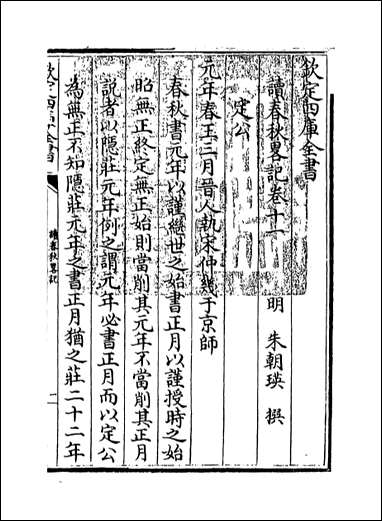 欽定四庫全書
讀春秋畧記卷十一
明 朱朝瑛 撰
定公
元年春王三月晉人執宋仲幾于京師
春秋書元年以謹繼世之始書正月以謹授時之始
昭無正終定無正始則當削其元年不當削其正月
說者以隱莊元年例之謂元年必書正月而以定公
為無正不知隱莊元年之書正月猶之莊二十二年
欽定四庫全書
讀春秋畧記
一